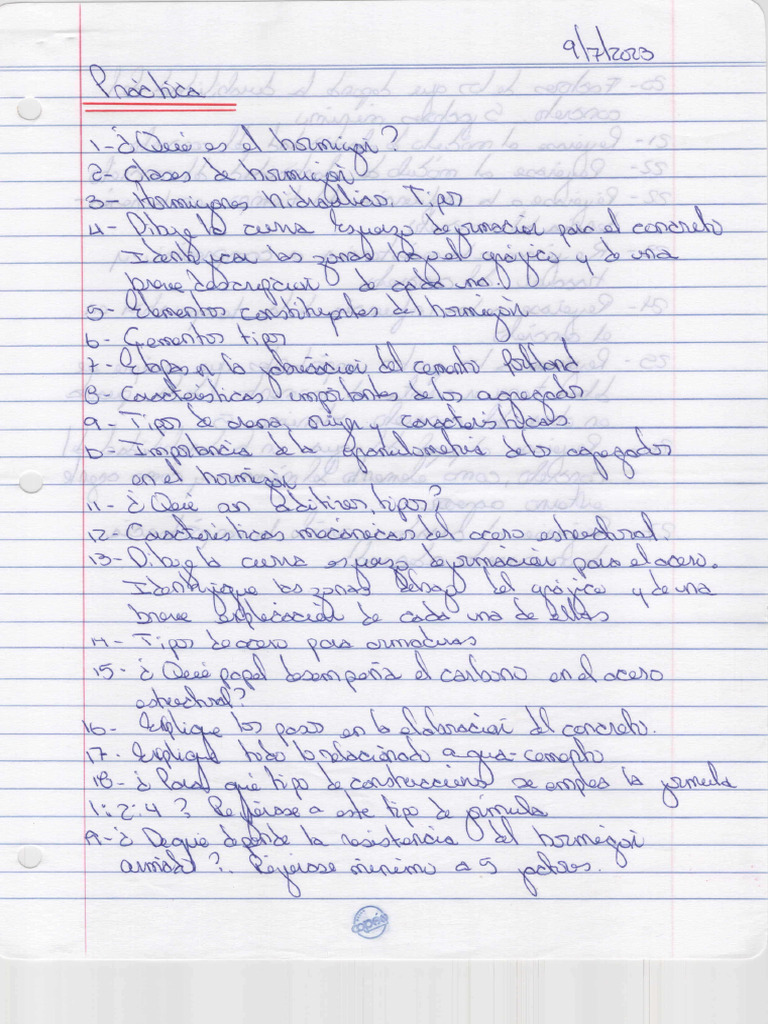 9/7/2023
Práctica
1- ¿Qué es el hormigón?
2- Clases de hormigón
3- Hormigones hidráulicos. Tipos
4- Dibuje la curva esfuerzo deformación para el concreto
Identificar las zonas bajo el gráfico y de una
breve descripción de cada una.
5- Elementos constituyentes del hormigón
6- Cementos tipos
7- Etapas en la fabricación del cemento Portland
8- Características importantes de los agregados
9- Tipos de arena origen y características.
10- Importancia de la granulometría de los agregados
en el hormigón
11- ¿Qué son aditivos, tipos?
12- Características mecánicas del acero estructural.
13- Dibuje la curva esfuerzo deformación para el acero.
Identifique las zonas debajo del gráfico y de una
breve explicación de cada una de ellas
14- Tipos de acero para armaduras
15- ¿Qué papel desempeña el carbono en el acero
estructural?
16- Explique los pasos en la elaboración del concreto.
17- Explique todo lo relacionado agua-cemento
18- ¿Para qué tipo de construcciones se emplea la fórmula
1:2:4? Refiérase a este tipo de fórmula
19- ¿De qué depende la resistencia del hormigón
armado?. Refiérase mínimo a 5 factores.